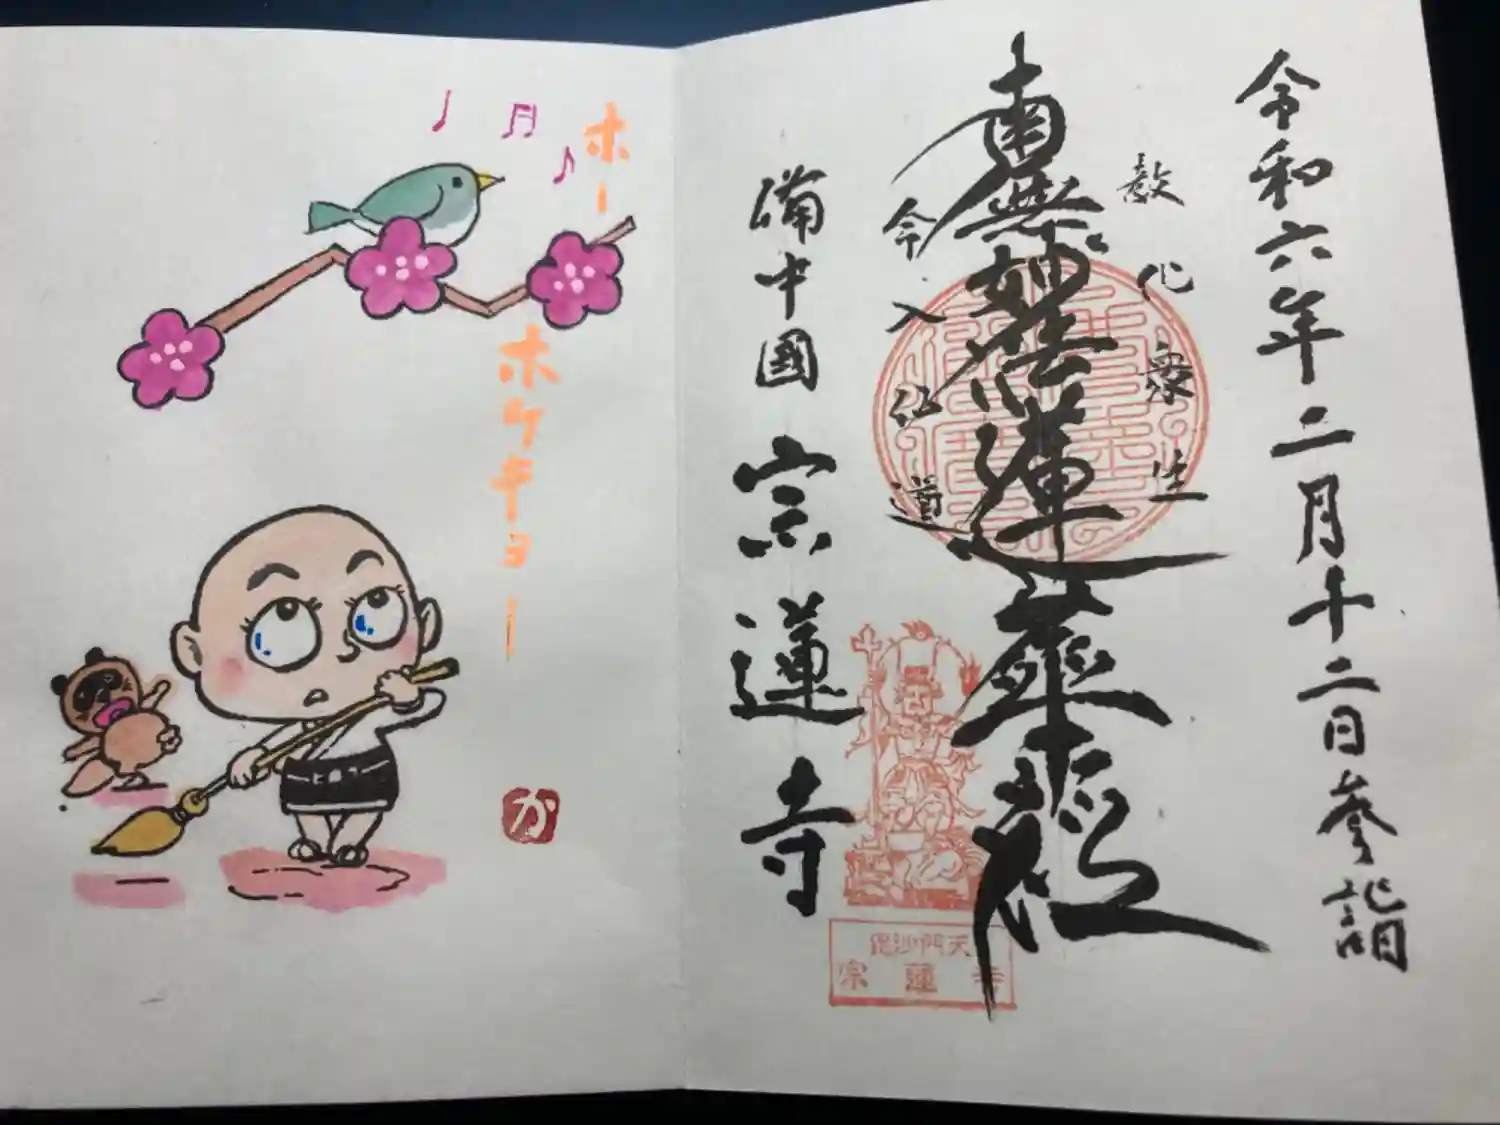 令和六年二月十二日参詣
教化衆生
南無妙法蓮華経
令入仏道
備中國
宗蓮寺
毘沙門天
宗蓮寺
ホー
ホケキョー
か